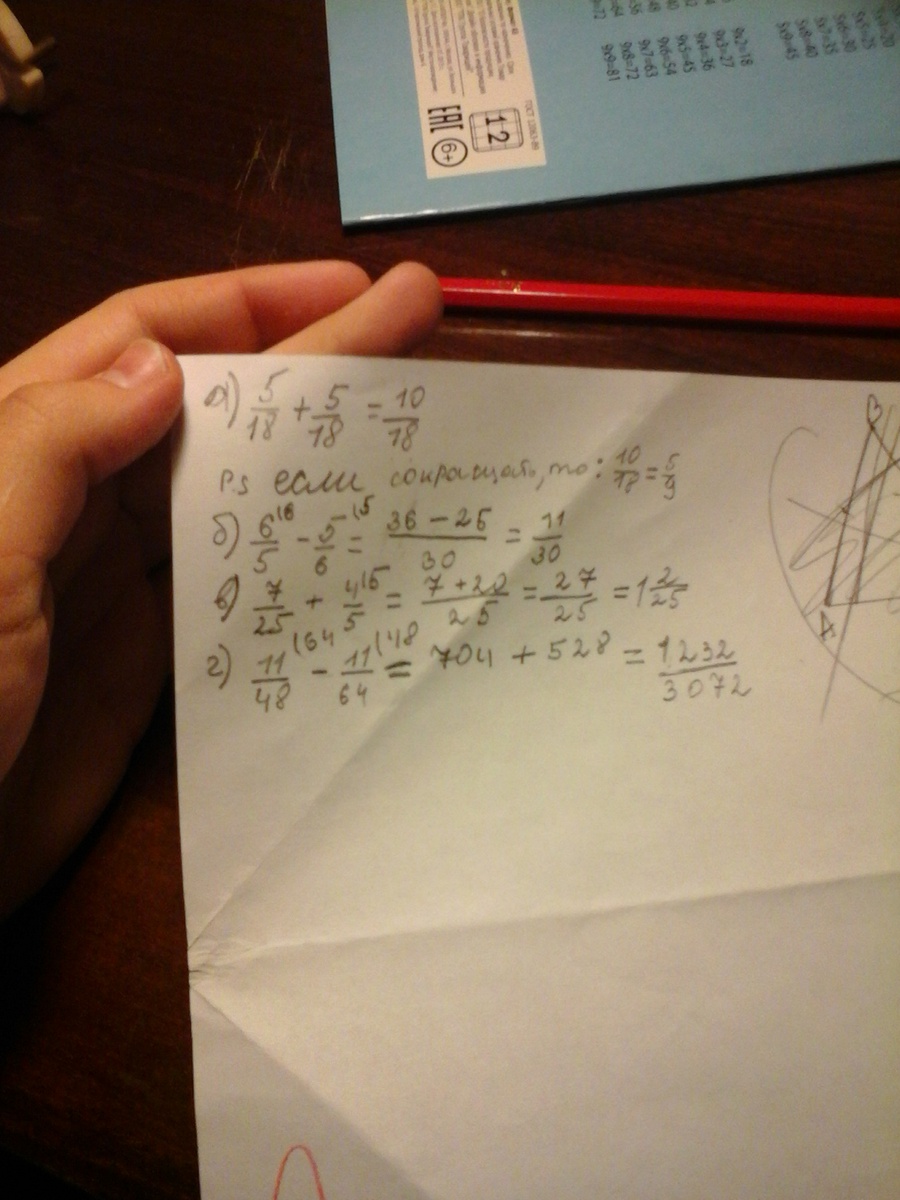 9x2=18
9x3=27
9x4=36
9x5=45
9x6=54
9x7=63
9x8=72
9x9=81
5x5=25
5x6=30
5x7=35
5x8=40
5x9=45
12
ЕАС
6+
а) 5/18 + 5/18 = 10/18
P.s если сокращать, то: 10/18 = 5/9
б) 6/5 (6 - 5/6 (5 = (36 - 25)/30 = 11/30
в) 7/25 + 4/5 (5 = (7 + 20)/25 = 27/25 = 1 2/25
г) 11/48 (64 - 11/64 (48 = 704 + 528 = 1232/3072
В
A